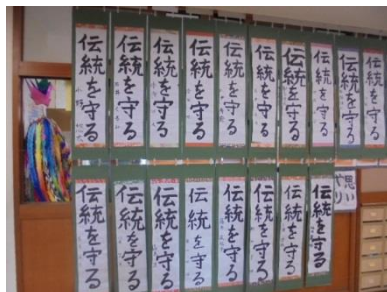 伝統を守る
伝統を守る
伝統を守る
伝統を守る
伝統を守る
伝統を守る
伝統を守る
伝統を守る
伝統を守る
伝統を守る
伝統を守る
伝統を守る
伝統を守る
伝統を守る
伝統を守る
伝統を守る
伝統を守る
伝統を守る
思い
やり